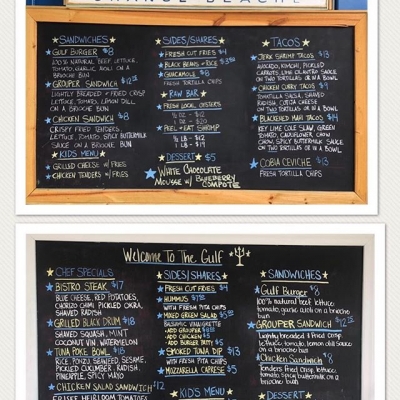 ORANGE BEACH
SANDWICHES
GULF BURGER $8
100% NATURAL BEEF, LETTUCE,
TOMATO, GARLIC AIOLI ON A
BRIOCHE BUN
GROUPER SANDWICH $12
LIGHTLY BREADED + FRIED CRISP
LETTUCE, TOMATO, LEMON DILL
ON A BRIOCHE BUN
CHICKEN SANDWICH $8
CRISPY FRIED TENDERS,
LETTUCE, TOMATO, SPICY BUTTERMILK
SAUCE ON A BRIOCHE BUN
KIDS MENU
GRILLED CHEESE W/ FRIES
CHICKEN TENDERS W/ FRIES
SIDES/SHARES
FRESH CUT FRIES $4
BLACK BEANS + RICE $3.50
GUACAMOLE $8
FRESH TORTILLA CHIPS
RAW BAR
FRESH LOCAL OYSTERS
1/2 DZ - $12
1 DZ - $20
PEEL + EAT SHRIMP
1/2 LB - $12
1 LB - $19
DESSERT $5
WHITE CHOCOLATE
MOUSSE W/ BLUEBERRY
COMPOTE
TACOS
JERK SHRIMP TACOS $13
AVOCADO, KIMCHI, PICKLED
CARROTS, LIME CILANTRO SAUCE
ON TWO TORTILLAS OR IN A BOWL
CHICKEN CURRY TACOS $9
TOMATILLA SALSA, SHAVED
RADISH, COTIJA CHEESE
ON TWO TORTILLAS OR IN A BOWL
BLACKENED MAHI TACOS $14
KEY LIME COLE SLAW, GREEN
TOMATO, CAULIFLOWER CHOW
CHOW, SPICY BUTTERMILK SAUCE
ON TWO TORTILLAS OR IN A BOWL
COBIA CEVICHE $13
FRESH TORTILLA CHIPS
Welcome To The Gulf
CHEF SPECIALS
BISTRO STEAK $17
BLUE CHEESE, RED POTATOES,
CHORIZO CHIMI, PICKLED OKRA,
SHAVED RADISH
GRILLED BLACK DRUM $18
SHAVED SQUASH, MINT,
COCONUT VIN, WATERMELON
TUNA POKE BOWL $18
RICE, PONZU, SEAWEED, SESAME,
PICKLED CUCUMBER, RADISH,
PINEAPPLE, SPICY MAYO
CHICKEN SALAD SANDWICH $12
HEIRLOOM TOMATOES
SIDES/SHARES
FRESH CUT FRIES $4
HUMMUS $7
WITH FRESH PITA CHIPS
MIXED GREEN SALAD $5
BALSAMIC VINAIGRETTE
ADD GROUPER $8
ADD CHICKEN $5
ADD BURGER PATTY $5
SMOKED TUNA DIP $13
WITH FRESH PITA CHIPS
MOZZARELLA CAPRESE $5
KID'S MENU
SANDWICHES
Gulf Burger $8
100% natural beef, lettuce
tomato, garlic aioli on a brioche
bun
GROUPER SANDWICH $12
Lightly breaded & fried Crisp
lettuce, tomato, lemon dill sauce
on a brioche bun
Chicken Sandwich $8
Tenders fried crisp, lettuce
tomato, Spicy buttermilk sauce on a
brioche bun
DESSERT